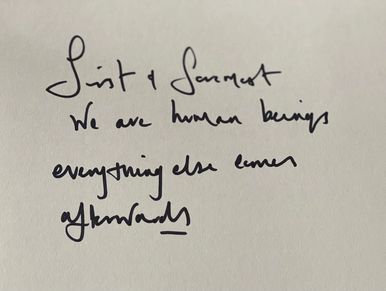 First & foremost
We are human beings
everything else comes
afterwards